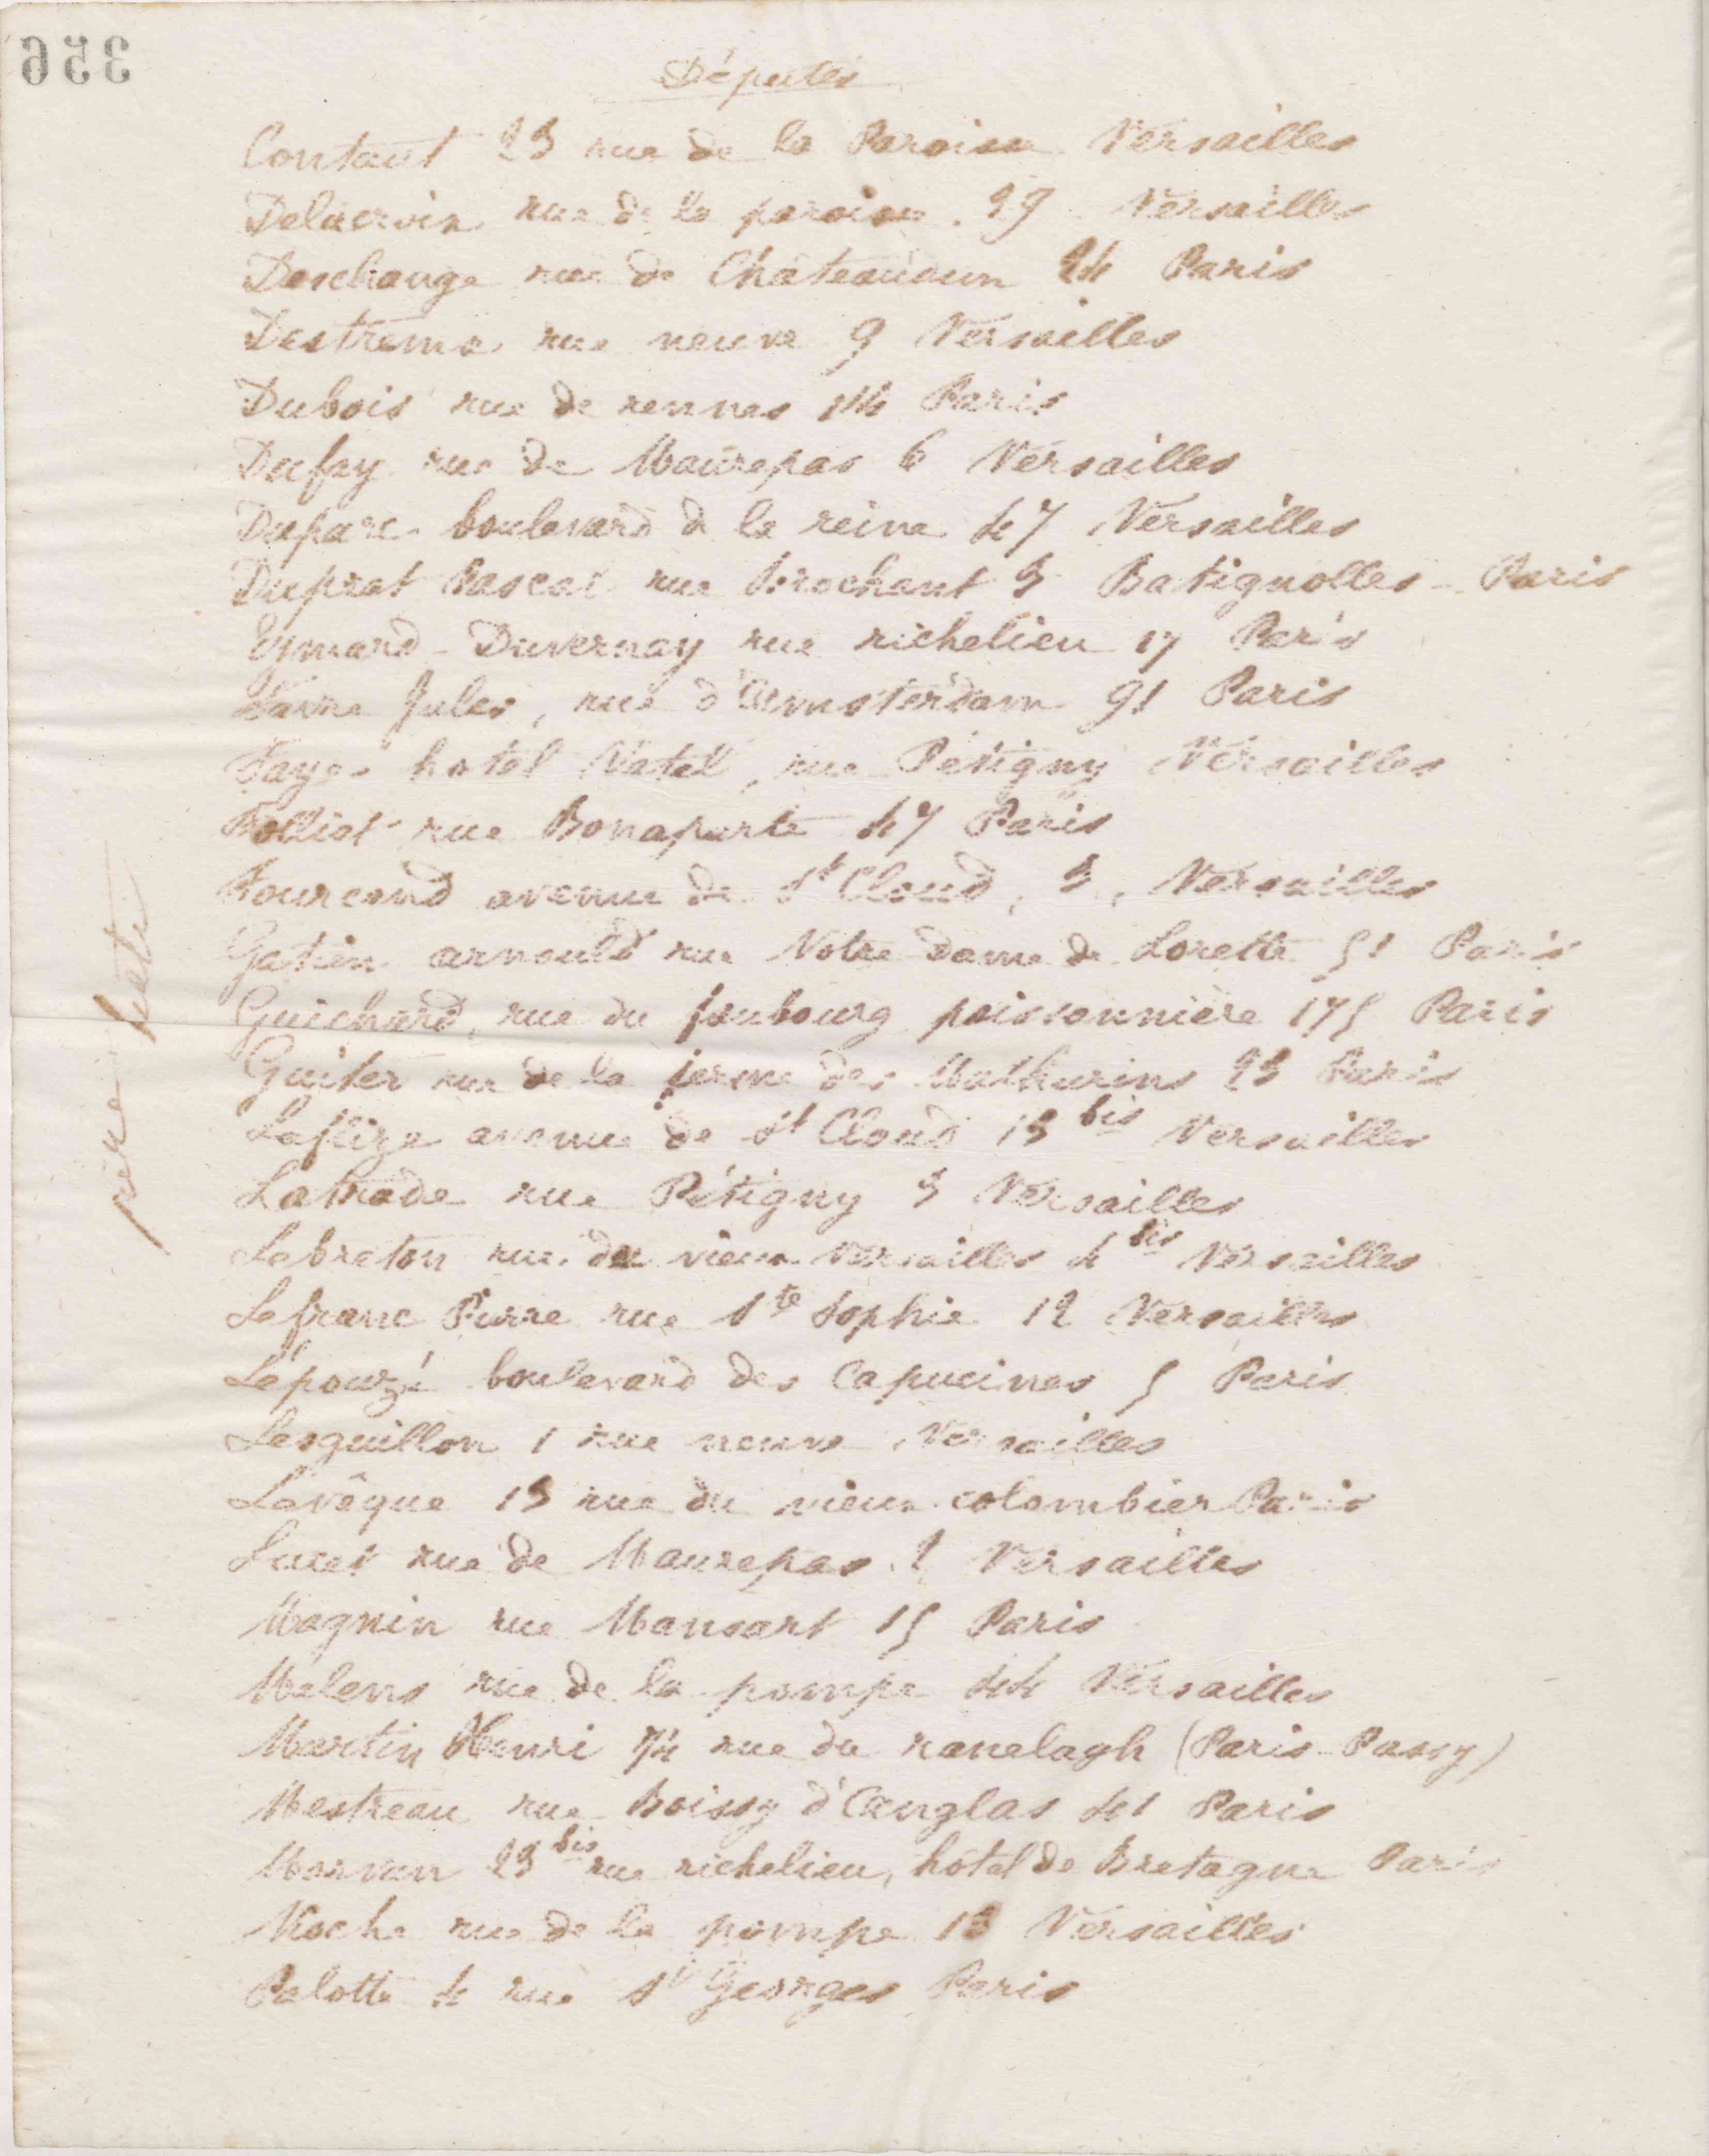 356
Députés
Contaut 23 rue de la Paroisse Versailles
Delacroix rue de la paroisse . 29 Versailles
Deschange rue de Châteaudun 24 Paris
Destremx rue neuve 9 Versailles
Dubois rue de rennes 114 Paris
Dufay rue de Maurepas 6 Versailles
Duparc boulevard de la reine 47 Versailles
Duprat Pascal rue Brochant 3 Batignolles - Paris
Eymard - Duvernay rue richelieu 17 Paris
Favre Jules, rue d'Amsterdam 91 Paris
Faye hotel Vatel, rue Pétigny Versailles
Folliot rue Bonaparte 47 Paris
Fourcand avenue de St Cloud, 3, Versailles
Gatien arnould rue Notre Dame de Lorette 51 Paris
Guichard, rue du faubourg poissonnière 175 Paris
Guiter rue de la ferme des Mathurins 23 Paris
Laflize avenue de St Cloud 13 bis Versailles
Latrade rue Pétigny 3 Versailles
Lebreton rue du vieux Versailles 4 bis Versailles
Lefranc Pierre rue Ste Sophie 12 Versailles
Lépouzé boulevard des capucines 5 Paris
Lesguillon 1 rue neuve Versailles
Levêque 13 rue du vieux colombier Paris
Lucet rue de Maurepas 2 Versailles
Magnin rue Mansart 15 Paris
Malens rue de la pompe 44 Versailles
Martin Henri 74 rue du ranelagh (Paris - Passy)
Mestreau rue Boissy d'Anglas 41 Paris
Morvan 23 bis rue richelieu, hôtel de Bretagne Paris
Noche rue de la pompe 13 Versailles
Palotte 4 rue St Georges Paris
père